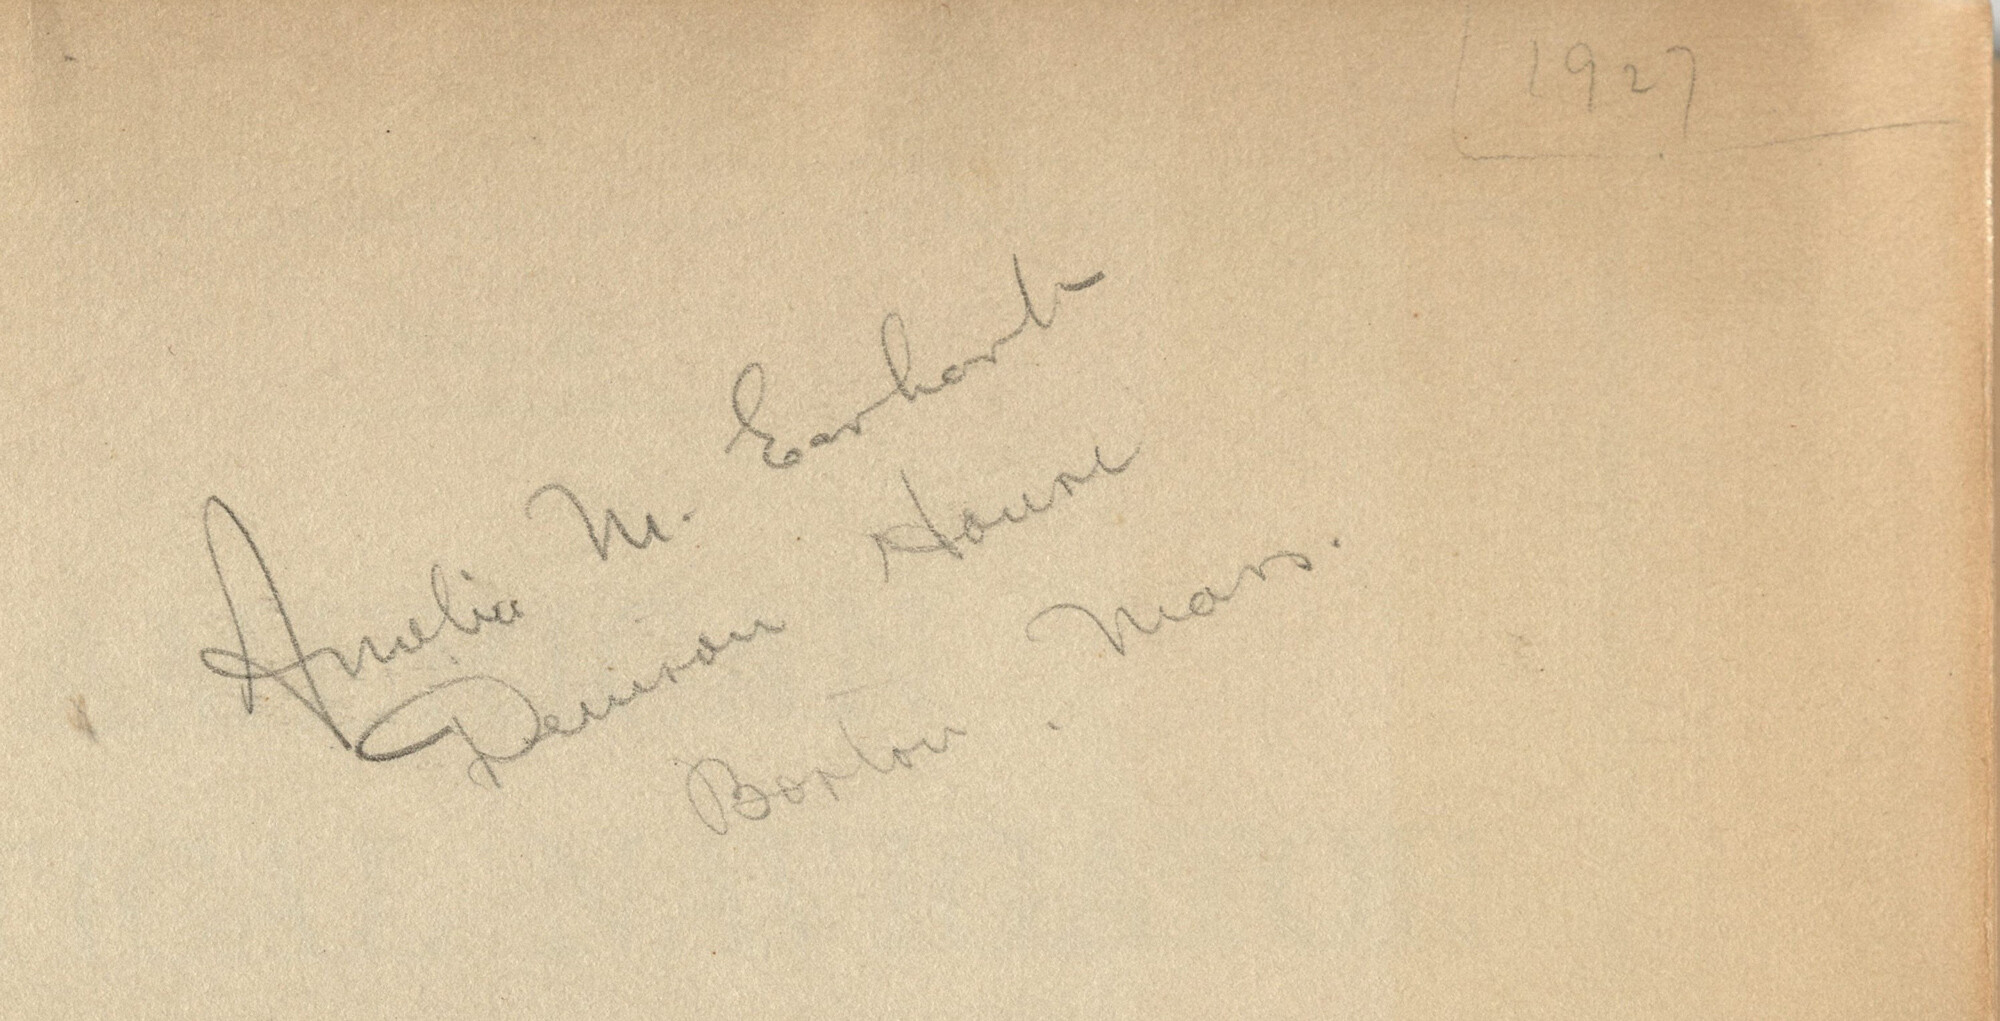 1927
Amelia M. Earhart
Denison House
Boston. Mass.